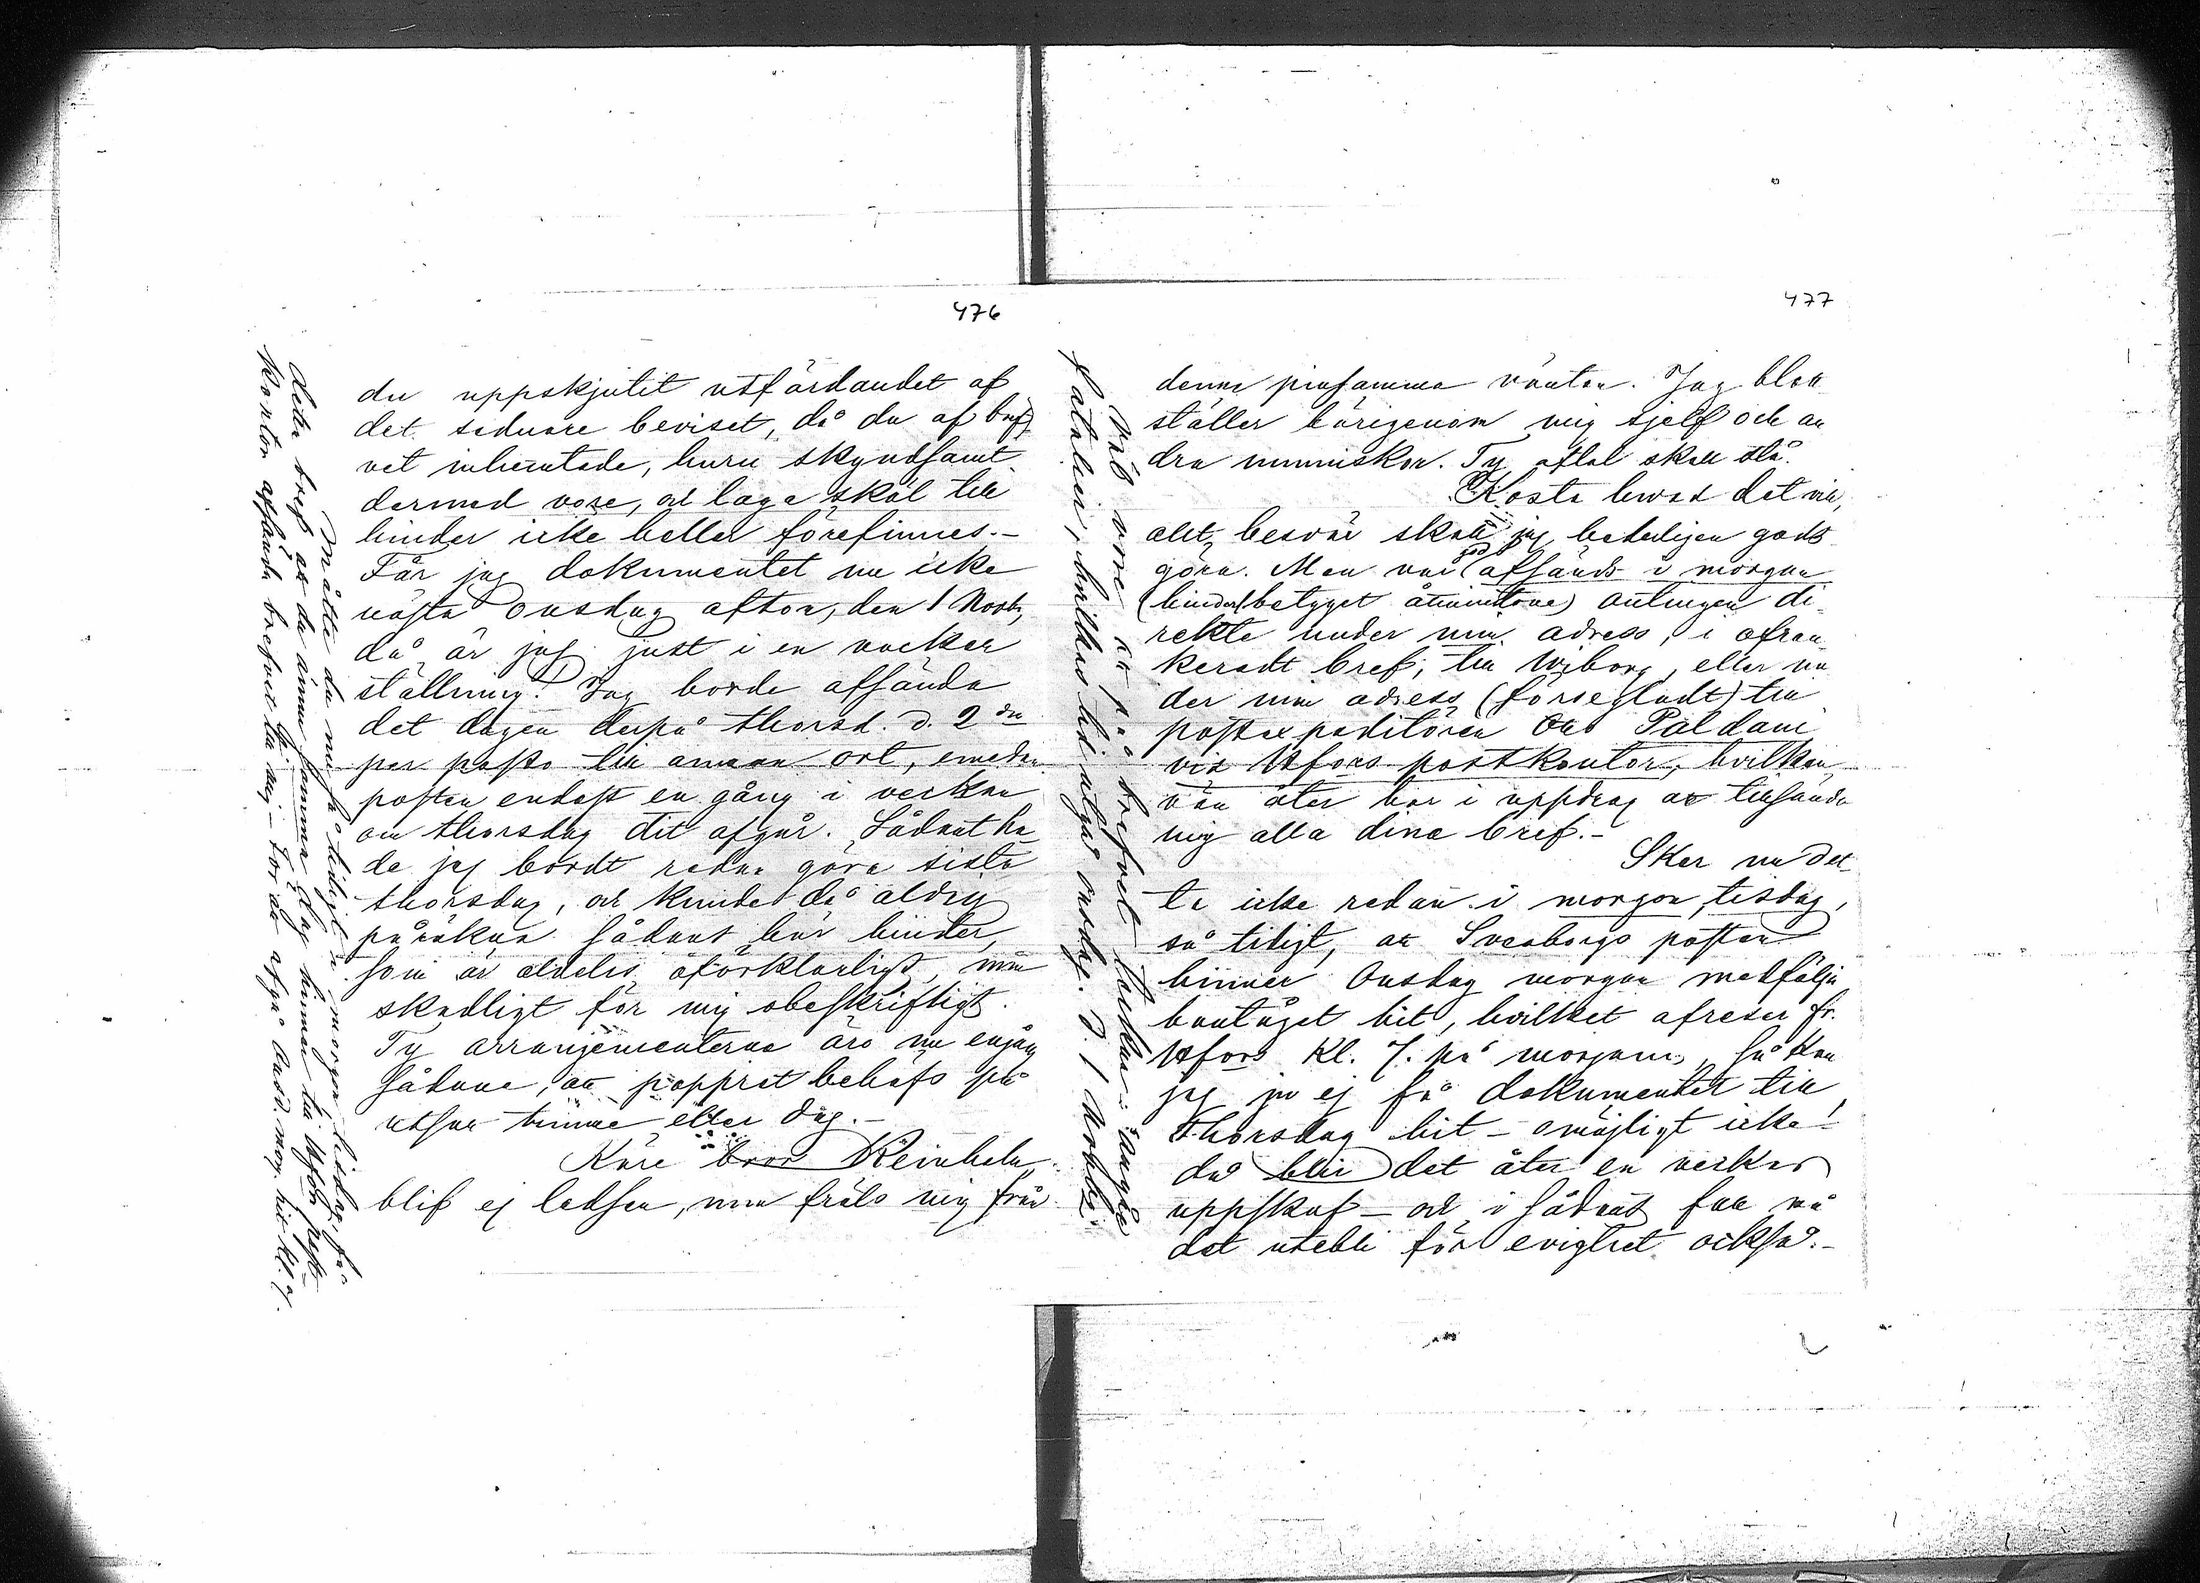 476
du uppskjutit utfärdandet af
det sednare beviset, då du af bref
vet inhemtade, huru skyndsamt
dermed vore, och laga skäl till
hinder icke heller förefinnes.-
Får jag dokumentet nu icke
nästa onsdag afton, den 1 Novb,
då är jag just i en vacker
ställning! Jag borde afsända
det dagen derpå thorsd. d. 2dn
per posto till annan ort, emedan
posten endast en gång i veckan
om thorsdag dit afgår. Sådant ha
de jag bordt redan göra sista
thorsdag, och kunde då aldrig
påräkna sådant här hinder,
som är aldeles oförklarligt, men
skadligt för mig obeskrifligt.
Ty arrangementerna äro nu engång
sådana, att pappret behöfs på
utsatt timme eller dag.-
Käre bror Reinholm,
blif ej ledsen, men fräls mig från
Måtte du nu få tidigt i morgon tisdag, få
detta bref att du ännu samma dag hinner till Hfors post
kontor afsända brefvet till mig - för att afgå Onsd. morg. hit kl. 7.
477
denna pinsamma väntan. Jag blott
ställer härigenom mig sjelf och an
dra menniskor. Ty aftal skall stå.
Kosta hvad det vill,
allt besvär skall jag bederligen godt
göra. Men var god afsänd i morgon
(hinderbetyget åtminstone) antingen di
rekte under min adress, i ofran
keradt bref, till Wiborg, eller un
der min adress (försegladt) till
postexpeditören Paldani
vid Hfors postkontor, hvilken
vän åter har i uppdrag att tillsända
mig alla dina bref.-
Sker nu det
ta icke redan i morgon, tisdag,
så tidigt, att Sveaborgs posten
hinner Onsdag morgon medfölja
bantåget hit, hvilket afreser fr.
Hfors kl. 7. på morgonen, så kan
jag ju ej få dokumentet till
Thorsdag hit - omöjligt icke!
då blir det åter en veckas
uppskof - och i sådant fall må
det utebli för evighet också.-
Var på brefvet
d. 1 Novbr.